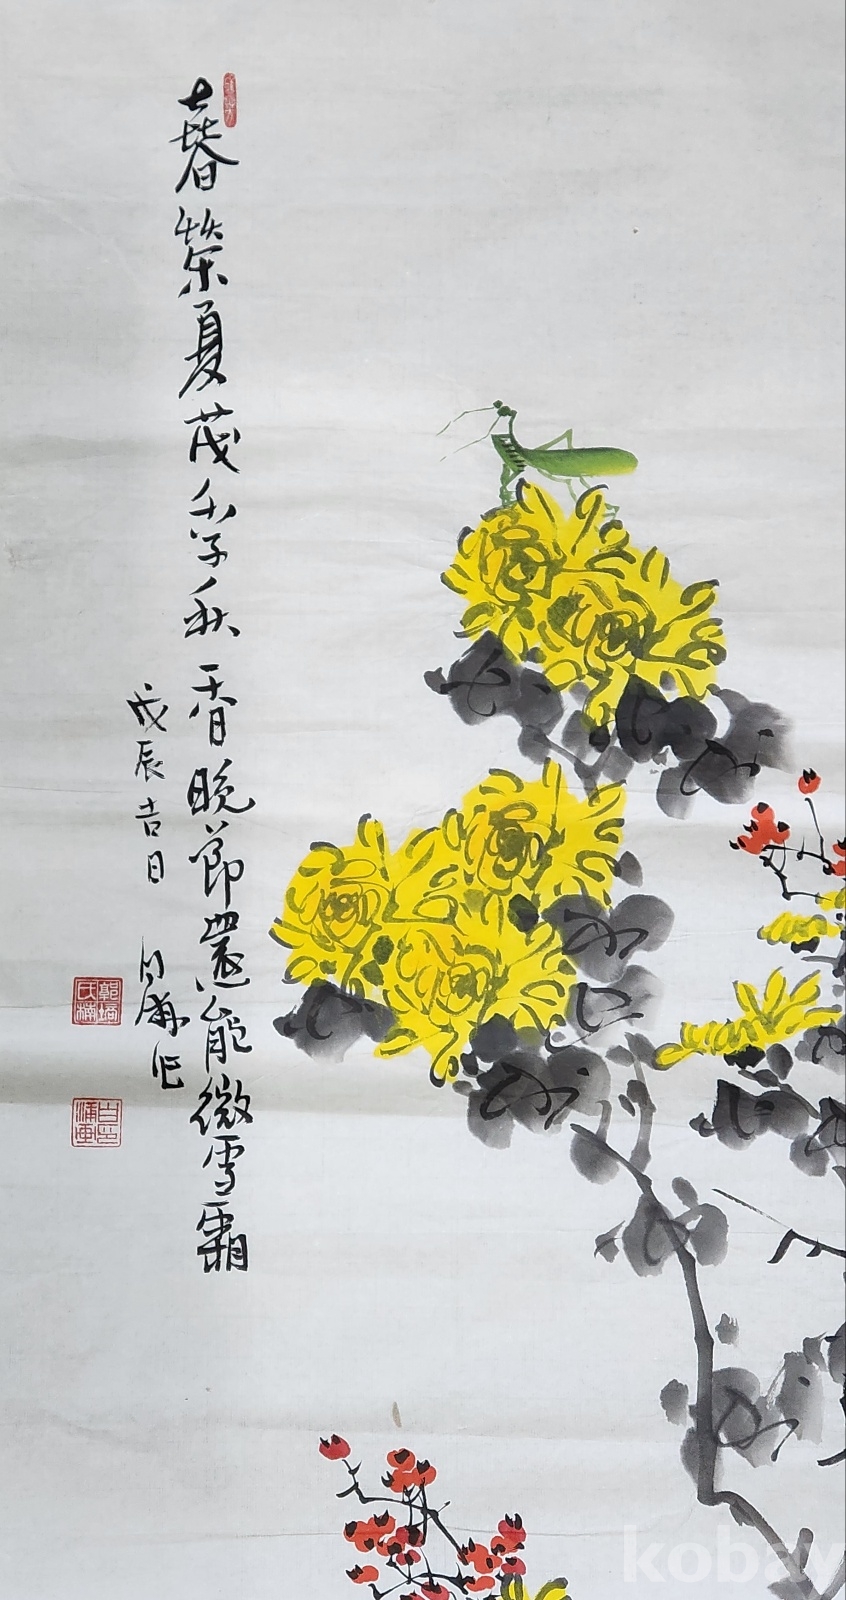 春榮夏茂季秋香晩節還能微雪霜
戊辰吉日
作
kobay